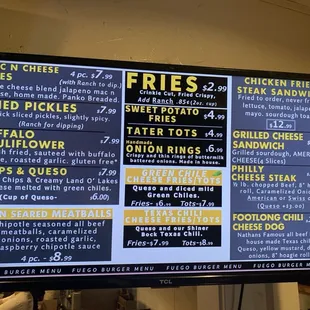 C N CHEESE
ES
4 pc. - $7.99
(with Ranch to dip)
cheese blend jalapeno mac n
ese, home made. Panko Breaded.
IED PICKLES
$7.99
ck sliced pickles, slightly spicy.
(Ranch for dipping)
UFFALO
ULIFLOWER
$7.99
h fried, sauteed with buffalo
e, roasted garlic. gluten free*
PS & QUESO
$7.99
Chips & Creamy Land O' Lakes
ese melted with green chiles.
(Cup of Queso- $6.00)
N SEARED MEATBALLS
hipotle seasoned all beef
meatballs, caramelized
onions, roasted garlic,
aspberry chipotle sauce
4 pc. - $8.99
FRIES
$2.99
Crinkle Cut, Fried Crispy,
Add Ranch .85¢(2oz. cup)
SWEET POTATO
FRIES
$4.99
TATER TOTS
$4.99
Handmade
ONION RINGS
$6.99
Crispy and thin rings of buttermilk
battered onions. Made in house.
GREEN CHILE
CHEESE FRIES/TOTS
Queso and diced mild
Green Chiles.
Fries-$6.99 Tots-$7.99
TEXAS CHILI
CHEESE FRIES/TOTS
Queso and our Shiner
Bock Texas Chili.
Fries-$7.99 Tots-$8.99
CHICKEN FRIE
STEAK SANDW
Fried to order, never fr
lettuce, tomato, jalape
mayo.
sourdough toas
$12.99
GRILLED CHEESE
SANDWICH
Grilled sourdough, AMER
CHEESE(4 Slices)
PHILLY
CHEESE STEAK
½ lb. chopped Beef, 8" h
roll, Caramelized Onion
American or Swiss C
(Queso +$2.00)
FOOTLONG CHILI
CHEESE DOG
Nathans Famous all beef
house made Texas chili
Queso, yellow mustard,
onions, 8" hoagie roll
BURGER MENU FUEGO BURGER MENU FUEGO BURGER MENU FUEGO BURGER MENU
TCL